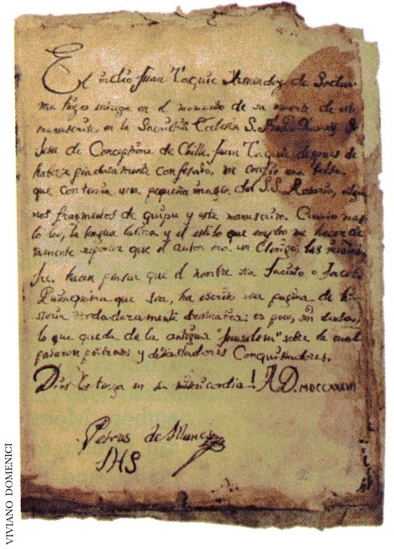 El indio Juan Taquic Menendez de Sodar
me hizo entrega en el momento de su muerte de este
manuscrito en la Sacristia Iglesia S. Francisco Xavier
Jesu de Concepcione de Chille. Juan Taquic despues de
haberse piadosamente confesado, me confio una bolsa,
que contenia una pequeña imagen del S.S. Rosario, algu
nos fragmentos de quipu y este manuscrito. Cuanto mas
lo leo, la lengua latina y el estilo que
tamente suponer que el autor era un Clerigo, las iniciales
hacen pensar que el nombre sea Jacinto o Jacobo
que sea, ha escrito una pagina de hi
storia verdaderamente dramatica: es poco, sin dudas,
lo que queda de la antigua "Jerusalem" sobre la cual
pasaron postremos y devastadores Conquistadores.
Dios los tenga en su misericordia! A.D. MDCCXXXVII
Petrus de
IHS
VIVIANO DOMENICI